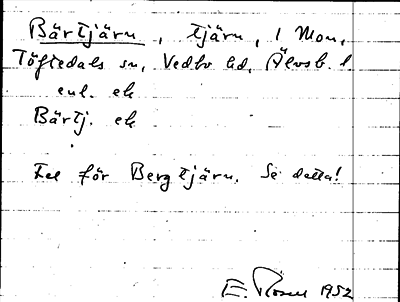 Bärtjärn, tjärn, i Mon,
Töftedals sn, Vedbo hd, Älvsb. l
enl. ek
Bärtj. ek
Fel för Bergtjärn. Se detta!
E. Rosén 1952